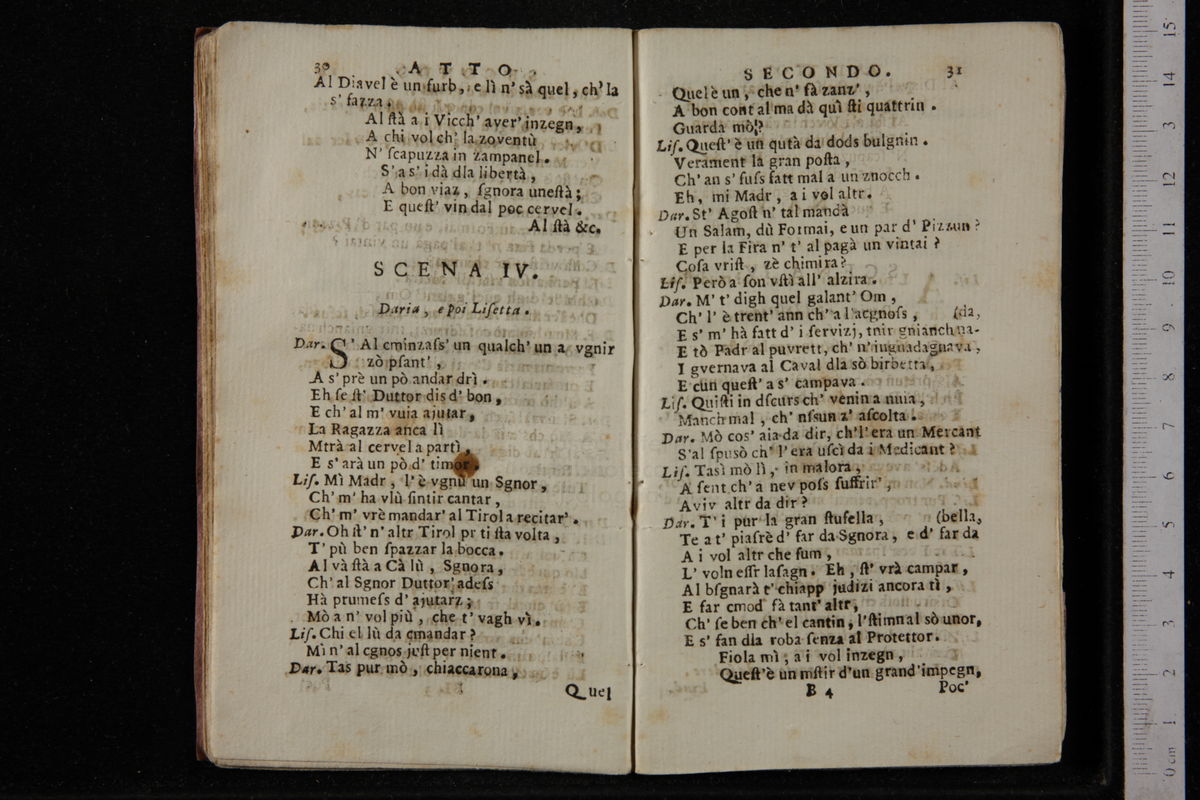 30 ATTO
Al Diavel è un furb, e lì n' sà quel, ch' la
s' fazza.
Al ſtà a i Vicch' aver' inzegn,
A chi vol ch' la zoventù
N' ſcapuzza in zampanel.
S' a s' i dà dla libertà,
A bon viaz, ſgnora uneſtà;
E queſt' vin dal poc cervel.
Al ſtà &c.
SCENA IV.
Daria, e poi Liſetta.
Dar. S' Al cminzaſs' un qualch' un a vgnir
zò pſant',
A s' prè un pò andar drì.
Eh ſe ſt' Duttor dis d' bon,
E ch' al m' vuia ajutar,
La Ragazza anca lì
Mtrà al cervel a partì,
E s' arà un pò d' timor.
Liſ. Mì Madr, l' è vgnù un Sgnor,
Ch' m' ha vlù ſintir cantar,
Ch' m' vrè mandar' al Tirol a recitar'.
Dar. Oh ſt' n' altr Tirol pr ti ſta volta,
T' pù ben ſpazzar la bocca.
Al và ſtà a Cà lù, Sgnora,
Ch' al Sgnor Duttor' adeſs
Hà prumeſs d' ajutarz;
Mò a n' vol più, che t' vagh vì.
Liſ. Chi el lù da cmandar?
Mì n' al cgnos juſt per nient.
Dar. Tas pur mò, chiaccarona,
Quel
SECONDO. 31
Quel è un, che n' fà zanz',
A bon cont al ma dà quì ſti quattrin.
Guarda mò!?
Liſ. Queſt' è un qutà da dods bulgnin.
Verament la gran poſta,
Ch' an s' fuſs fatt mal a un znocch.
Eh, mi Madr, a i vol altr.
Dar. St' Agoſt n' tal mandà
Un Salam, dù Formai, e un par d' Pizzun?
E per la Fira n' t' al pagà un vintai?
Coſa vriſt, zè chimira?
Liſ. Però a ſon vſtì all' alzira.
Dar. M' t' digh quel galant' Om,
Ch' l' è trent' ann ch' a l' acgnoſs, (da,
E s' m' hà fatt d' i ſervizj, tnir gnianch na-
E tò Padr al puvrett, ch' n' inguadagnava,
I gvernava al Caval dla sò birbetta,
E cun queſt' a s' campava.
Liſ. Quiſti in dſcurs ch' venin a nuia,
Manch mal, ch' nſsun z' aſcolta.
Dar. Mò cos' aia da dir, ch' l' era un Mercant
S' al ſpusò ch' l' era uſcì da i Medicant?
Liſ. Tasì mò lì, in malora,
A ſent ch' a nev poſs ſuffrir',
Aviv altr da dir?
Dar. T' i pur la gran ſtuſella, (bella,
Te a t' piaſrè d' far da Sgnora, e d' far da
A i vol altr che fum,
L' voln eſſr laſagn. Eh, ſt' vrà campar,
Al bſgnarà t' chiapp judizi ancora tì,
E far cmod fà tant' altr,
Ch' ſe ben ch' el cantin, l' ſtimnal sò unor,
E s' fan dia roba ſenza al Protettor.
Fiola mì, a i vol inzegn,
Queſt' è un mſtir d' un grand' impegn,
B 4 Poc'